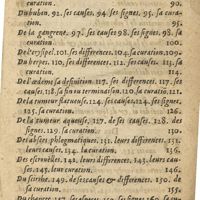 curation. 90.
Du bubon. 92. ses causes. 94. ses signes. 95. sa cura-
tion. 95.
De la gangrene. 97. ses causes 98. ses signes. 98. sa
curation. 100.
Du erysipel. 101. ses differences. 104. sa curation. 109.
Du herpes. 110. ses differences. 112. ses causes. 113.
sa curation. 114.
De l'œdeme sa definition. 117. ses differences. 117. ses
causes. 118. sa fin ou termination. 119. sa curatiō. 121.
De la tumeur flatueuse. 124. ses causes. 124. ses signes.
125. sa curation. 126.
De la tumeur aqueuse. 127. de ses causes. 128. des
signes. 129. sa curation. 130.
Des abscés phlegmatiques. 131. leurs differences. 131.
leurs causes. 134. la curation. 136.
Des escroüelles. 143. leurs differences. 143. leurs cau-
ses. 145. leur curation. 146.
Du scirrhe. 149. de ses causes & differences. 150. de
sa curation. 155.